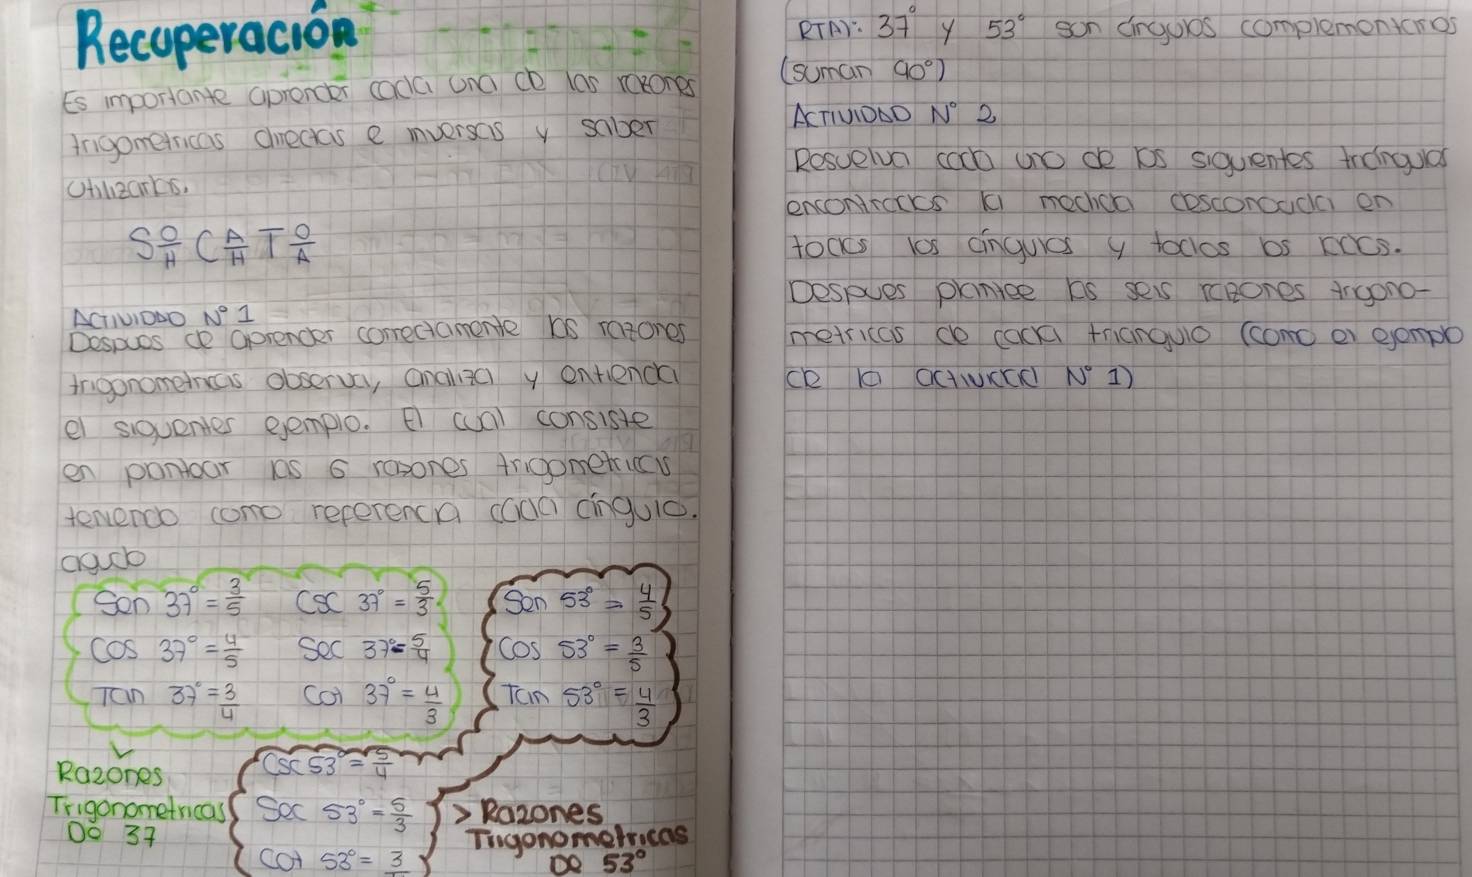 Recuperación
Es importante aprender cada una de las razones
trigometricas directas e inversas y saber
utilizarlas.
S O/H C A/H T O/A
ACTIVIDAD N° 1
Despues de aprender correctamente las razones
trigonometricas observa, analiza y entienda
el siguentes ejemplo. El cual consiste
en plantear las 6 razones trigometricas
teniendo como referencia cada ángulo.
agudo
Sen 37° = 3/5 CSC 37° = 5/3
COS 37° = 4/5 Sec 37° = 5/4
Tan 37° = 3/4 Cot 37° = 4/3
Sen 53° = 4/5
COS 53° = 3/5
Tan 53° = 4/3
CSC 53° = 5/4
Sec 53° = 5/3
Cot 53° = 3
Razones
Trigonometricas
De 37
> Razones
Trigonometricas
De 53°
RTA): 37° y 53° son ángulos complementarios
(suman 90°)
ACTIVIDAD N° 2
Resuelva cada uno de los siguientes triángulos
encontradas la medida desconocida en
todas los ángulos y todos los lados.
Despues plantee las seis razones trigono-
metricas de cada triangulo (como el ejemplo
de la actividad N° 1)